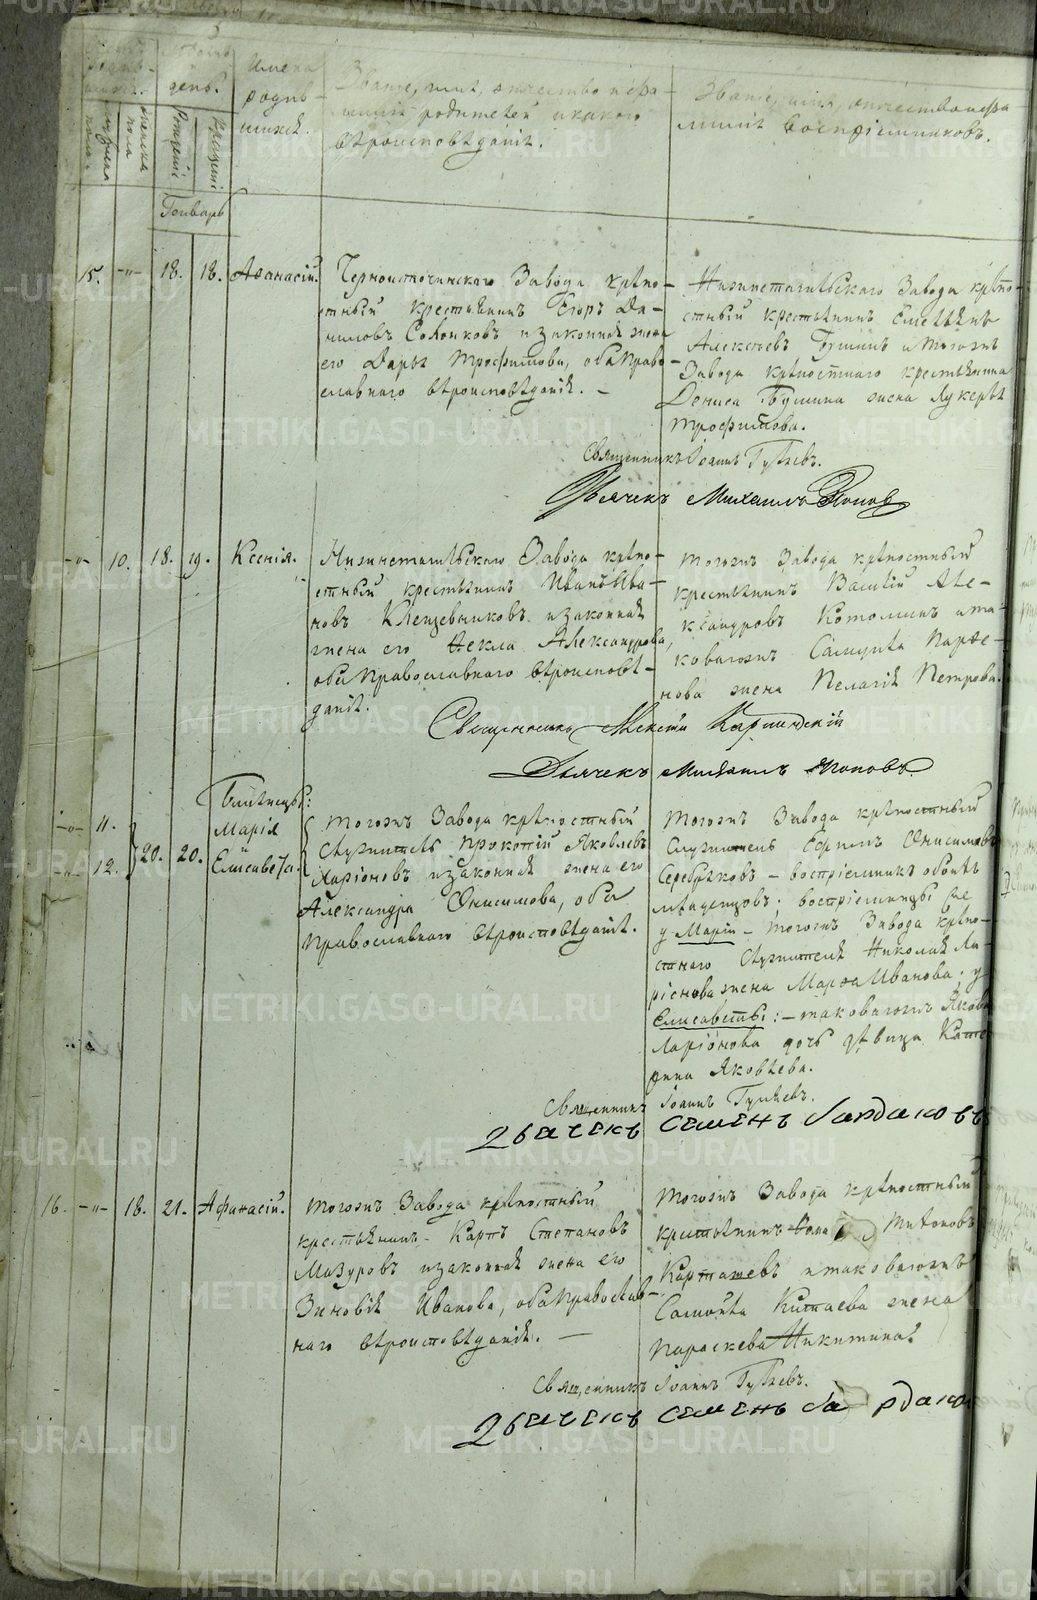 METRIKI.GASO-URAL.RU
Имена родив-
шихся.
Званіе, имя, отчество и фа-
милія родителей и какого
вѣроисповѣданія.
Званіе, имя, отчество и фа
милія воспріемниковъ.
мужска пола
женска пола
Рожденія
Крещенія
Генварь
15. -„- 18. 18. Аѳанасій.
Черноисточинскаго Завода крѣпо-
стный крестьянинъ Егоръ Да-
ниловъ и законная жена
его Дарья Трофимова, оба право-
славнаго вѣроисповѣданія. -
Нижнетагильскаго Завода крѣпо-
стный крестьянинъ Емельянъ
Алексѣевъ и тогожъ
Завода крѣпостнаго крестьянина
Дениса жена Лукерья
Трофимова.
Священникъ Іоаннъ
Дьячекъ Михаилъ Поповъ
-„- 10. 18. 19. Ксенія.
Нижнетагильскаго Завода крѣпо-
стный крестьянинъ Иванъ Ива-
новъ Клещевниковъ и законная
жена его Ѳекла Александрова,
оба Православнаго вѣроисповѣ-
данія.
тогожъ Завода крѣпостный
крестьянинъ Василій Але-
ксандровъ и та-
коваго жъ Самуила Парѳе-
нова жена Пелагія Петрова.
Священникъ Карпинскій
Дьячекъ Михаилъ Поповъ
Близнецы:
-„- 11. Марія
-„- 12. 20. 20. Елисавета.
Тогожъ Завода крѣпостный
служитель Прокопій Яковлевъ
Ларіоновъ и законная жена его
Александра Онисимова, оба
Православнаго вѣроисповѣданія.
Тогожъ Завода крѣпостный
служитель Ефимъ Онисимовъ
Серебряковъ - воспріемникъ обоихъ
младенцовъ; воспріемницы же
у Маріи - тогожъ Завода крѣпо-
стнаго служителя Николая Ла-
ріонова жена Марѳа Иванова. у
Елисаветы: - таковагожъ Якова
Ларіонова дочь дѣвица Кате-
рина Яковлева.
Священникъ Іоаннъ
дьячекъ Семенъ Бардаковъ
16. -„- 18. 21. Афанасій.
Тогожъ Завода крѣпостный
крестьянинъ Карпъ Степановъ
Мазуровъ и законная жена его
Зиновія Иванова, оба Православ-
наго вѣроисповѣданія. —
Тогожъ Завода крѣпостный
крестьянинъ Ѳома Титовъ
Карташевъ и таковагожъ
Самойла Китаева жена
Параскева Никитина.
Священникъ Іоаннъ
дьячекъ Семенъ Бардаковъ